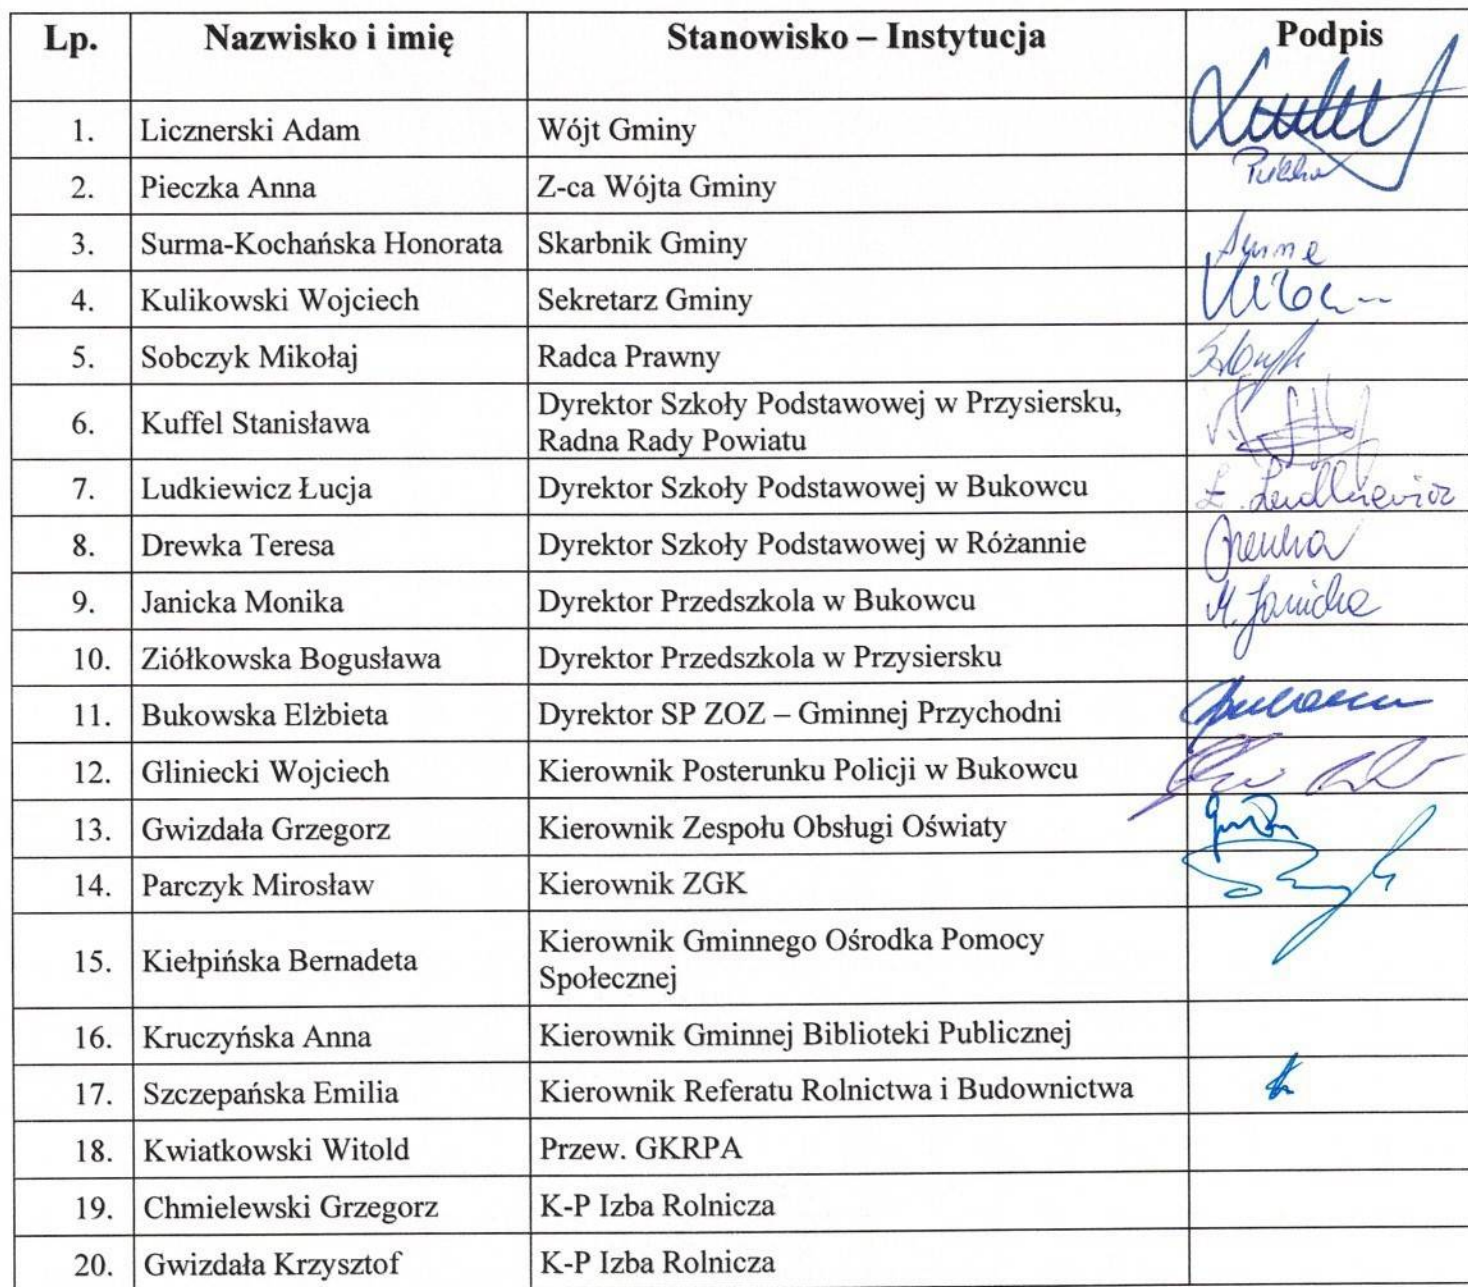 Lp. Nazwisko i imię Stanowisko – Instytucja Podpis
1. Licznerski Adam Wójt Gminy
2. Pieczka Anna Z-ca Wójta Gminy
3. Surma-Kochańska Honorata Skarbnik Gminy
4. Kulikowski Wojciech Sekretarz Gminy
5. Sobczyk Mikołaj Radca Prawny
6. Kuffel Stanisława Dyrektor Szkoły Podstawowej w Przysiersku,
Radna Rady Powiatu
7. Ludkiewicz Łucja Dyrektor Szkoły Podstawowej w Bukowcu Ł. Ludkiewicz
8. Drewka Teresa Dyrektor Szkoły Podstawowej w Różannie
9. Janicka Monika Dyrektor Przedszkola w Bukowcu M. Janicka
10. Ziółkowska Bogusława Dyrektor Przedszkola w Przysiersku
11. Bukowska Elżbieta Dyrektor SP ZOZ – Gminnej Przychodni
12. Gliniecki Wojciech Kierownik Posterunku Policji w Bukowcu
13. Gwizdała Grzegorz Kierownik Zespołu Obsługi Oświaty
14. Parczyk Mirosław Kierownik ZGK
15. Kiełpińska Bernadeta Kierownik Gminnego Ośrodka Pomocy
Społecznej
16. Kruczyńska Anna Kierownik Gminnej Biblioteki Publicznej
17. Szczepańska Emilia Kierownik Referatu Rolnictwa i Budownictwa
18. Kwiatkowski Witold Przew. GKRPA
19. Chmielewski Grzegorz K-P Izba Rolnicza
20. Gwizdała Krzysztof K-P Izba Rolnicza